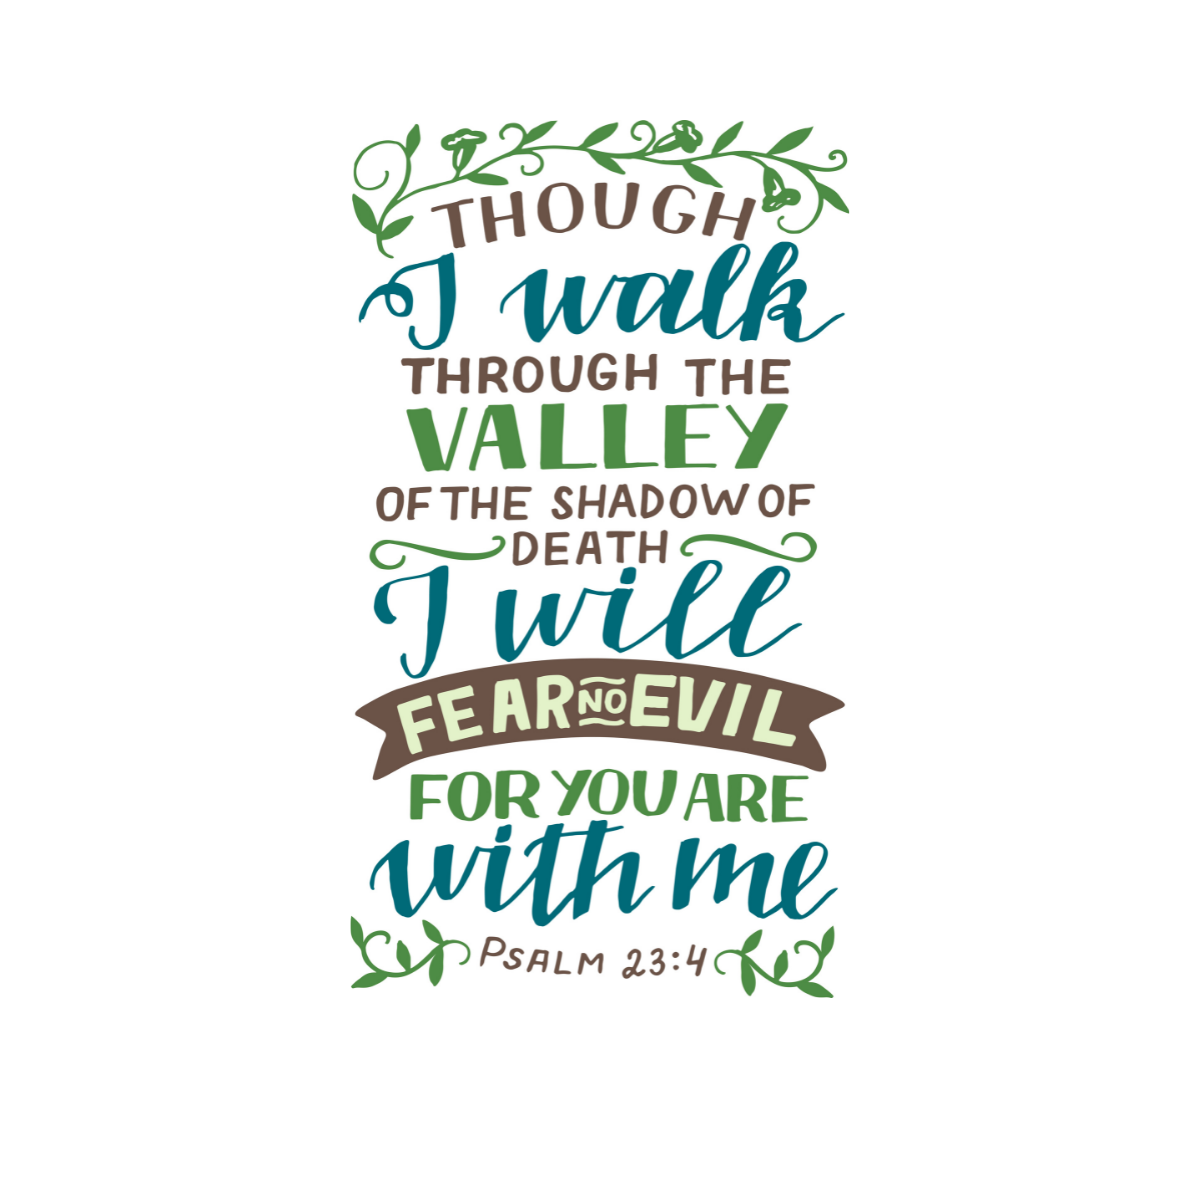 THOUGH
I walk
THROUGH THE
VALLEY
OF THE SHADOW OF
DEATH
I will
FEAR NO EVIL
FOR YOU ARE
with me
PSALM 23:4